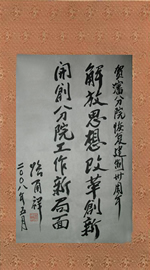 贺沈分院恢复建制卅周年
解放思想改革創新
開創分院工作新局面
路甬祥
二〇〇八年五月